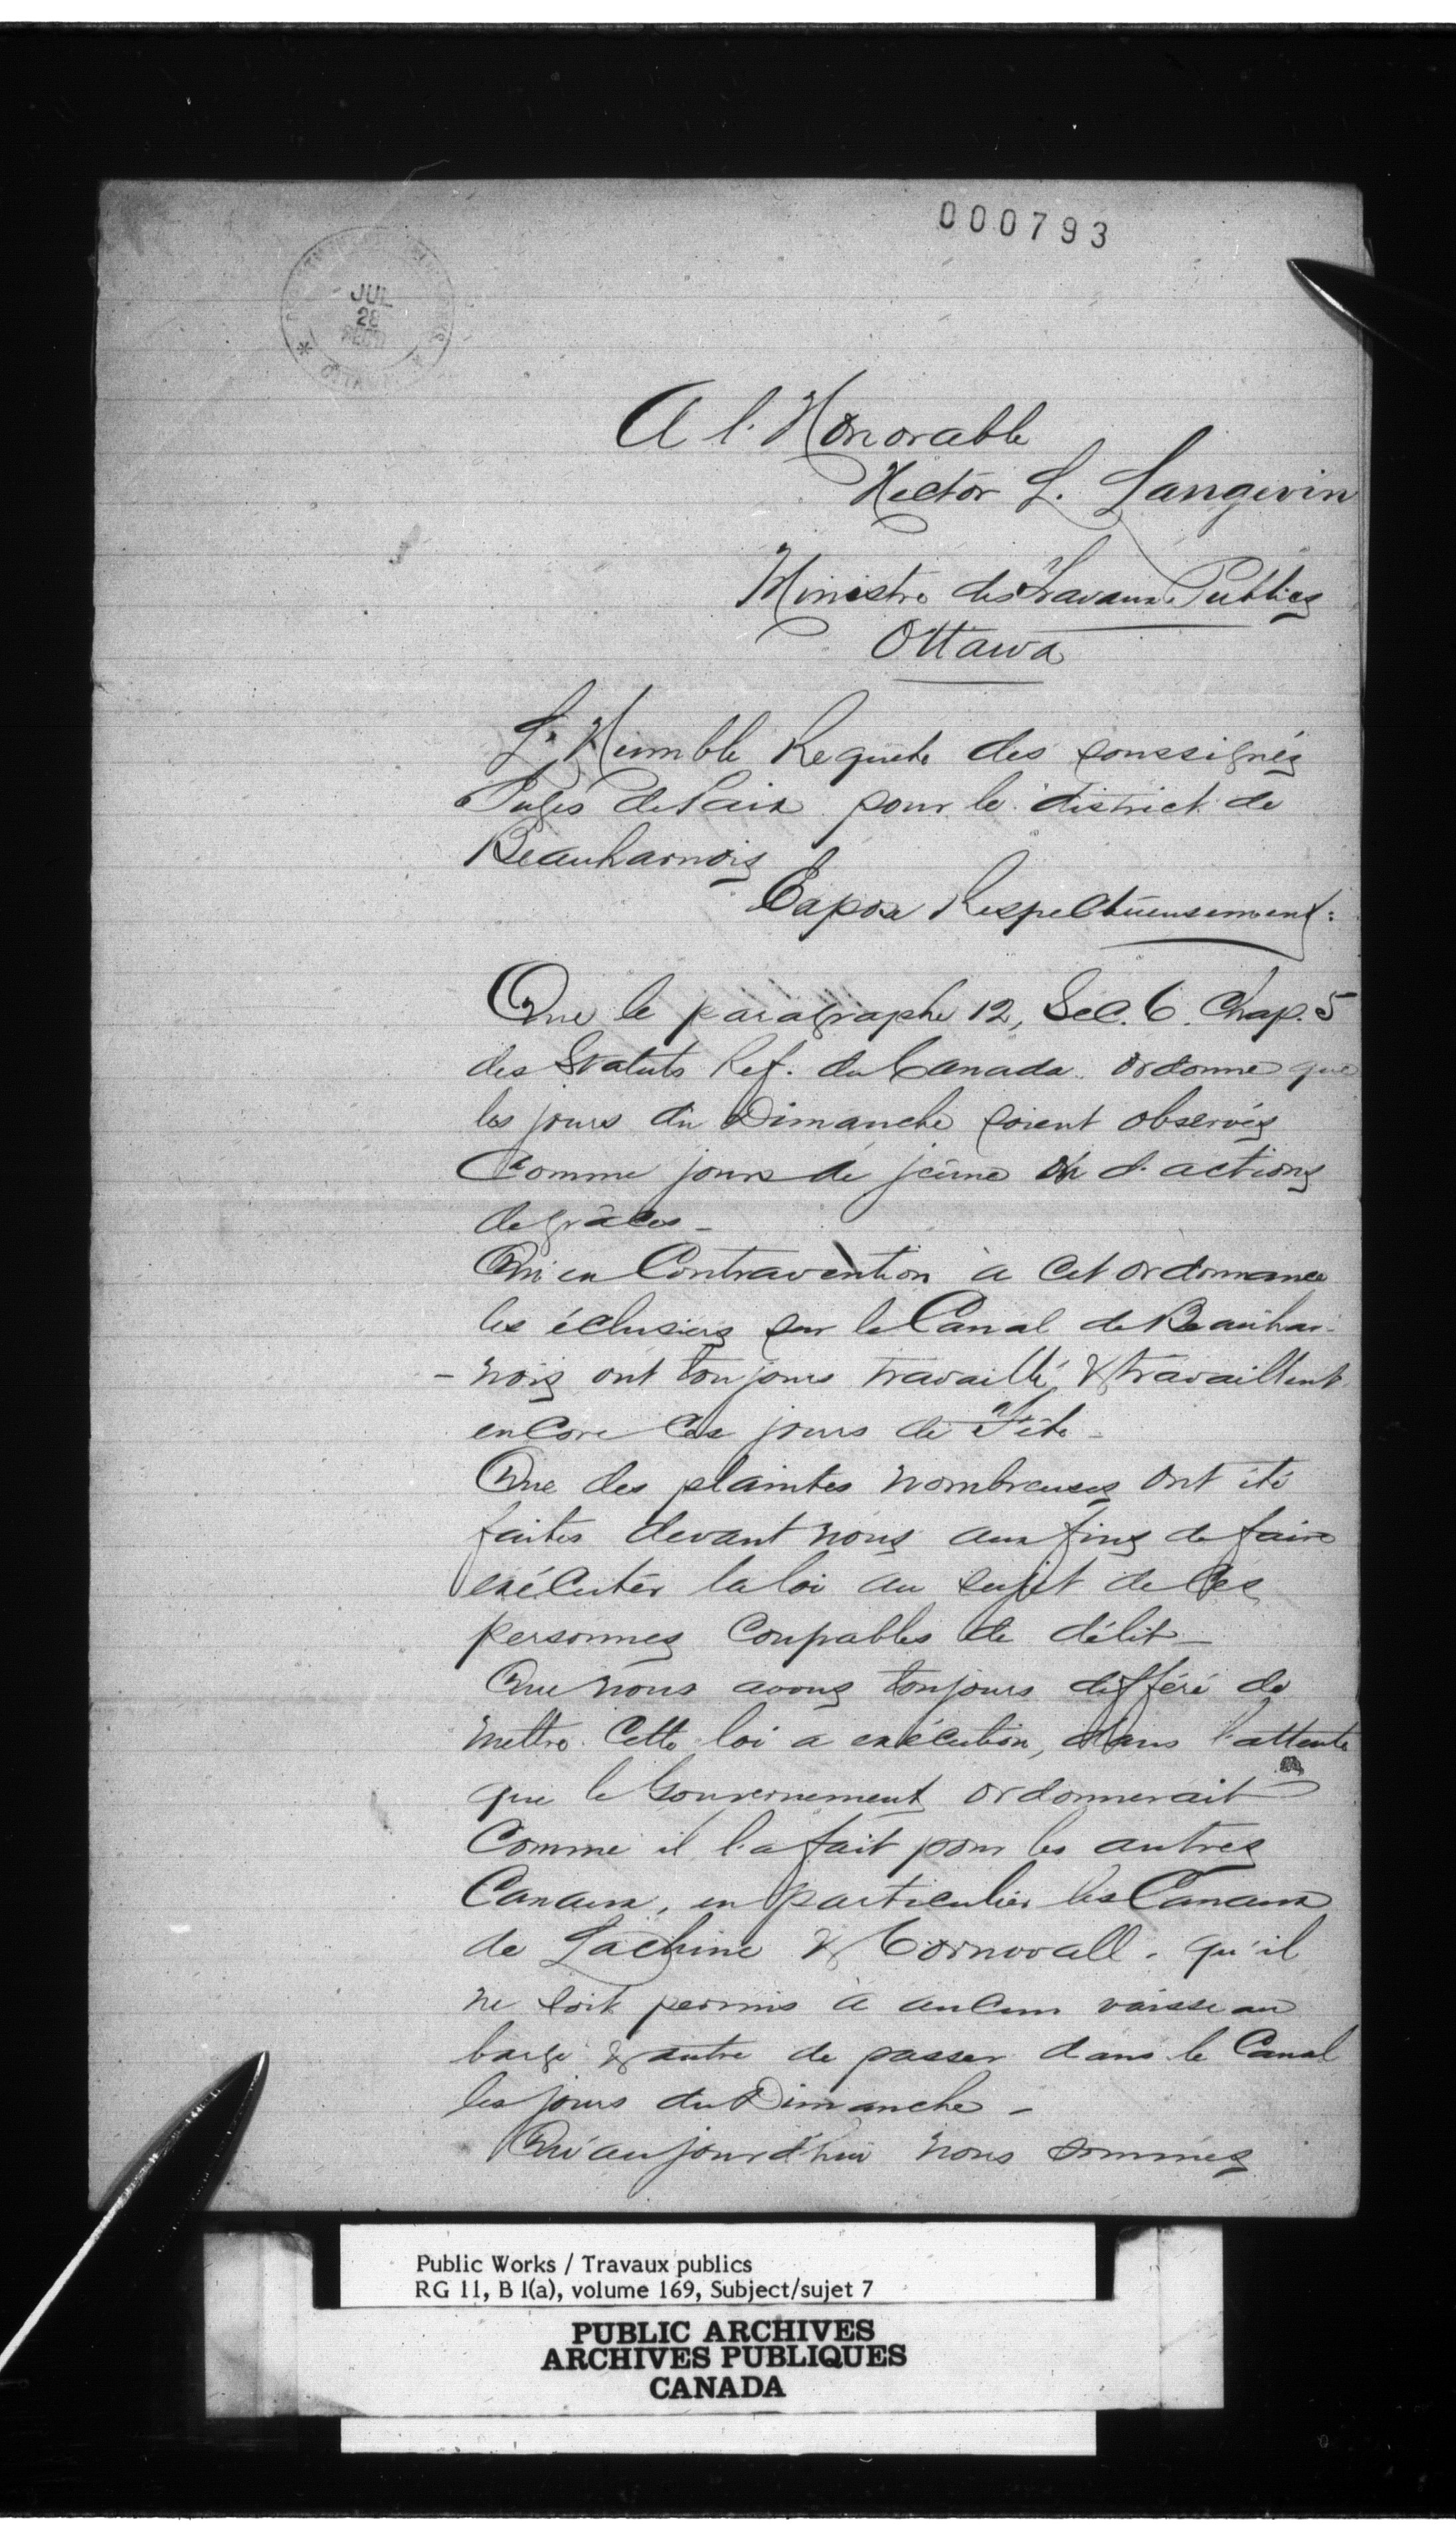 000793
JUL
28
OTTAWA
A l'Honorable
Hector L. Langevin
Ministre des Travaux Publics
Ottawa
L'Humble Requete des soussignés
Juges de Paix pour le district de
Beauharnois
Expose Respectueusement:
Que le paragraphe 12, Sec. 6. Chap. 5
des Statuts Ref. du Canada ordonne que
les jours du Dimanche soient observés
comme jours de jeûne ou d'actions
de grâces -
Qu'en Contravention à cet ordonnance
les éclusiers sur le Canal de Beauhar-
- nois ont toujours travaillé & travaillent
encore ces jours de Fête -
Que des plaintes nombreuses ont été
faites devant nous aux fins de faire
exécuter la loi au sujet de ces
personnes coupables de délit -
Que nous avons toujours différé de
mettre cette loi a exécution, dans l'attente
que le Gouvernement ordonnerait
comme il l'a fait pour les autres
Canaux, en particulier les Canaux
de Lachine & Cornwall, qu'il
ne soit permis à aucun vaisseau
barge & autre de passer dans le Canal
les jours du Dimanche -
Qu'aujourd'hui nous sommes
Public Works / Travaux publics
RG 11, B 1(a), volume 169, Subject/sujet 7
PUBLIC ARCHIVES
ARCHIVES PUBLIQUES
CANADA